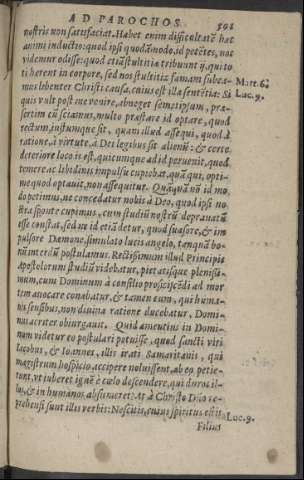 AD PAROCHOS. 591
nostris non satisfaciat. Habet enim difficultatē hac
animi inductio: quod ipsi quodāmodo, id petētes, nos
videmur odisse: quod etiā stultitia tribuunt ij, qui to
ti herent in corpore, sed nos stultitia famam subea-
mus lubenter Christi causa, cuius est illa sentētia: Si
quis vult post me venire, abneget semetipsum, præ-
sertim cū sciamus, multo præstare id optare, quod
rectum, iustumque sit, quam illud assequi, quod à
ratione, à virtute, à Dei legibus sit alienū: & certe
deteriore loco is est, qui cumque ad id peruenit, quod
temere, ac libidinis impulsu cupiebat, quā qui, opti-
me quod optauit, non assequitur. Quāquā nō id mo
do petimus, ne concedatur nobis à Deo, quod ipsi no
stra sponte cupimus, cum studiū nostrū deprauatū
esse constat, sed ne id etiā detur, quod suasore, & im
pulsore Dæmone, simulato lucis angelo, tanquā bo-
nū interdū postulamus. Rectissimum illud Principis
Apostolorum studiū videbatur, pietatisque plenissi-
mum, cum Dominum à consilio proficiscēdi ad mor
tem auocare conabatur, & tamen eum, qui huma-
nis sensibus, non diuina ratione ducebatur, Domi-
nus acriter obiurgauit. Quid amentius in Domi-
num videtur eo postulari potuisse, quod sancti viri
Iacobus, & Ioannes, illis irati Samaritanis, qui
magistrum hospitio accipere noluissent, ab eo petie-
runt, vt iuberet ignē è cœlo descendere, qui duros il-
los, & inhumanos absumeret? At à Christo Dño re-
prehensi sunt illis verbis: Nescitis, cuius spiritus estis
Filius
Luc. 9.
Luc. 9.